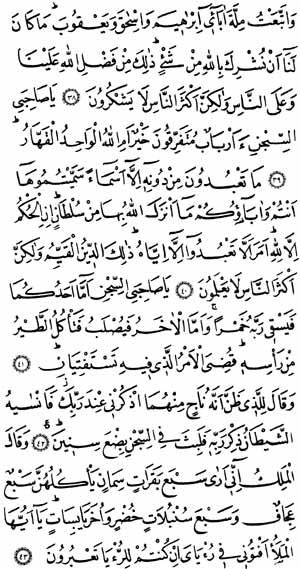 وَاتَّبَعْتُ مِلَّةَ اٰبَٓاءٖٓى اِبْرٰهٖيمَ وَاِسْحٰقَ وَيَعْقُوبَۜ مَا كَانَ
لَنَٓا اَنْ نُشْرِكَ بِاللّٰهِ مِنْ شَىْءٍۜ ذٰلِكَ مِنْ فَضْلِ اللّٰهِ عَلَيْنَا
وَعَلَى النَّاسِ وَلٰكِنَّ اَكْثَرَ النَّاسِ لَا يَشْكُرُونَ ﴿٣٨﴾ يَا صَاحِبَىِ
السِّجْنِ ءَاَرْبَابٌ مُتَفَرِّقُونَ خَيْرٌ اَمِ اللّٰهُ الْوَاحِدُ الْقَهَّارُۜ
﴿٣٩﴾ مَا تَعْبُدُونَ مِنْ دُونِهٖٓ اِلَّٓا اَسْمَٓاءً سَمَّيْتُمُوهَٓا
اَنْتُمْ وَاٰبَٓاؤُ۬كُمْ مَٓا اَنْزَلَ اللّٰهُ بِهَا مِنْ سُلْطَانٍۜ اِنِ الْحُكْمُ
اِلَّا لِلّٰهِۜ اَمَرَ اَلَّا تَعْبُدُٓوا اِلَّٓا اِيَّاهُۜ ذٰلِكَ الدّٖينُ الْقَيِّمُ وَلٰكِنَّ
اَكْثَرَ النَّاسِ لَا يَعْلَمُونَ ﴿٤٠﴾ يَا صَاحِبَىِ السِّجْنِ اَمَّٓا اَحَدُكُمَا
فَيَسْقٖى رَبَّهُ خَمْرًاۚ وَاَمَّا الْاٰخَرُ فَيُصْلَبُ فَتَاْكُلُ الطَّيْرُ
مِنْ رَاْسِهٖۜ قُضِىَ الْاَمْرُ الَّذٖى فٖيهِ تَسْتَفْتِيَانِۜ ﴿٤١﴾
وَقَالَ لِلَّذٖى ظَنَّ اَنَّهُ نَاجٍ مِنْهُمَا اذْكُرْنٖى عِنْدَ رَبِّكَۘ فَاَنْسٰيهُ
الشَّيْطَانُ ذِكْرَ رَبِّهٖ فَلَبِثَ فِى السِّجْنِ بِضْعَ سِنٖينَۜ ﴿٤٢﴾ وَقَالَ
الْمَلِكُ اِنّٖٓى اَرٰى سَبْعَ بَقَرَاتٍ سِمَانٍ يَاْكُلُهُنَّ سَبْعٌ
عِجَافٌ وَسَبْعَ سُنْبُلَاتٍ خُضْرٍ وَاُخَرَ يَابِسَاتٍۜ يَٓا اَيُّهَا
الْمَلَاُ اَفْتُونٖى فٖى رُءْيَاىَ اِنْ كُنْتُمْ لِلرُّءْيَا تَعْبُرُونَ ﴿٤٣﴾